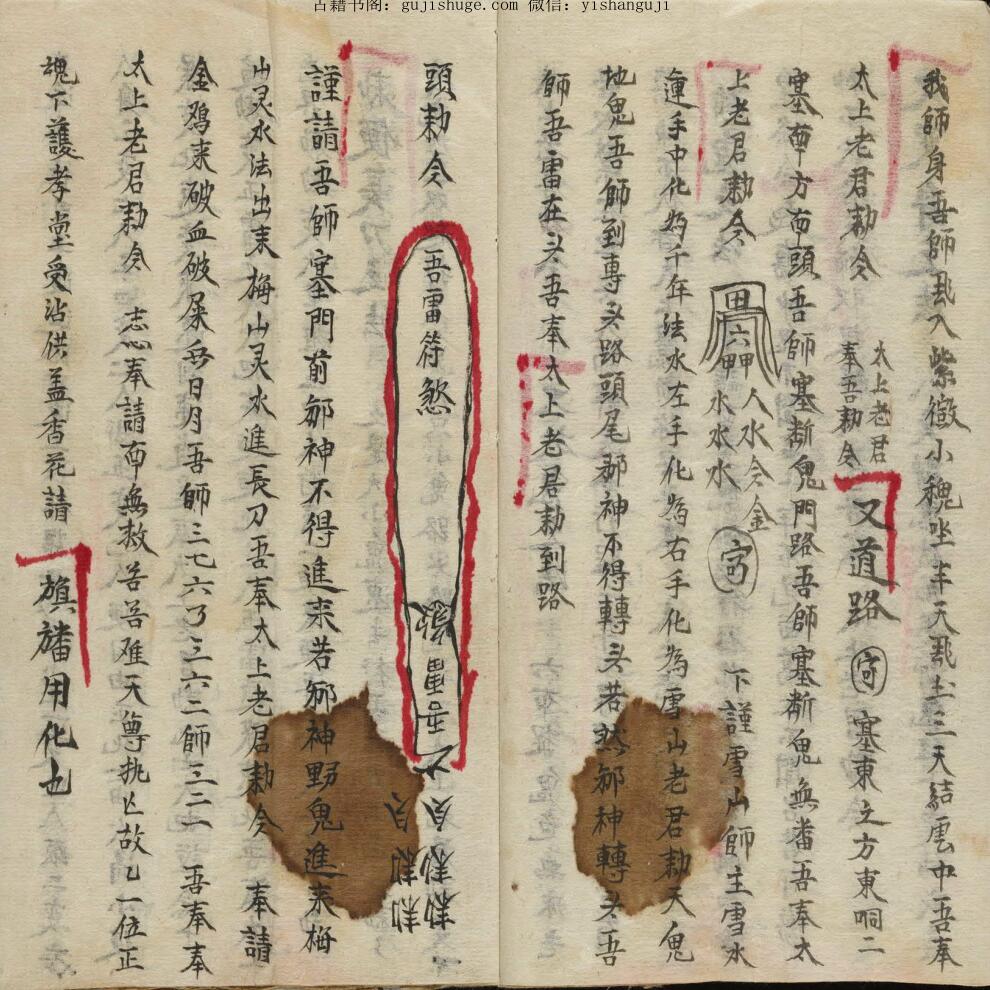 古籍书阁：gujishuge.com 微信：yishanguji
我師身吾師飛入紫微小穐坐半天飛出三天結雲中吾奉
太上老君勅令
太上老君
奉吾勅令
又道路 寄 塞東立方東呬二
塞南方南頭吾師塞断鬼門路吾師塞断鬼無番吾奉太
上老君勅令
田六甲
人水令金
水水水
寄
下謹雪山師主雪水
蓮手中化為千年法水左手化為右手化為雪山老君勅天鬼
地鬼吾師到專头路頭尾邪神不得轉头若然邪神轉头吾
師吾雷在头吾奉太上老君勅到路
頭勅令
吾雷符煞
勅勅
謹請吾師塞門前邪神不得進来若邪神野鬼進来梅
山灵水法出来梅山灵水進長刀吾奉太上老君勅令 奉請
金鷄来破血破屎 日月吾師三七六了三六二師三二二 吾奉奉
太上老君勅令 志心奉請 無救苦苦难天尊执亡故乙一位正
魂下護孝堂受沾供盖香花請
旗旛用化也